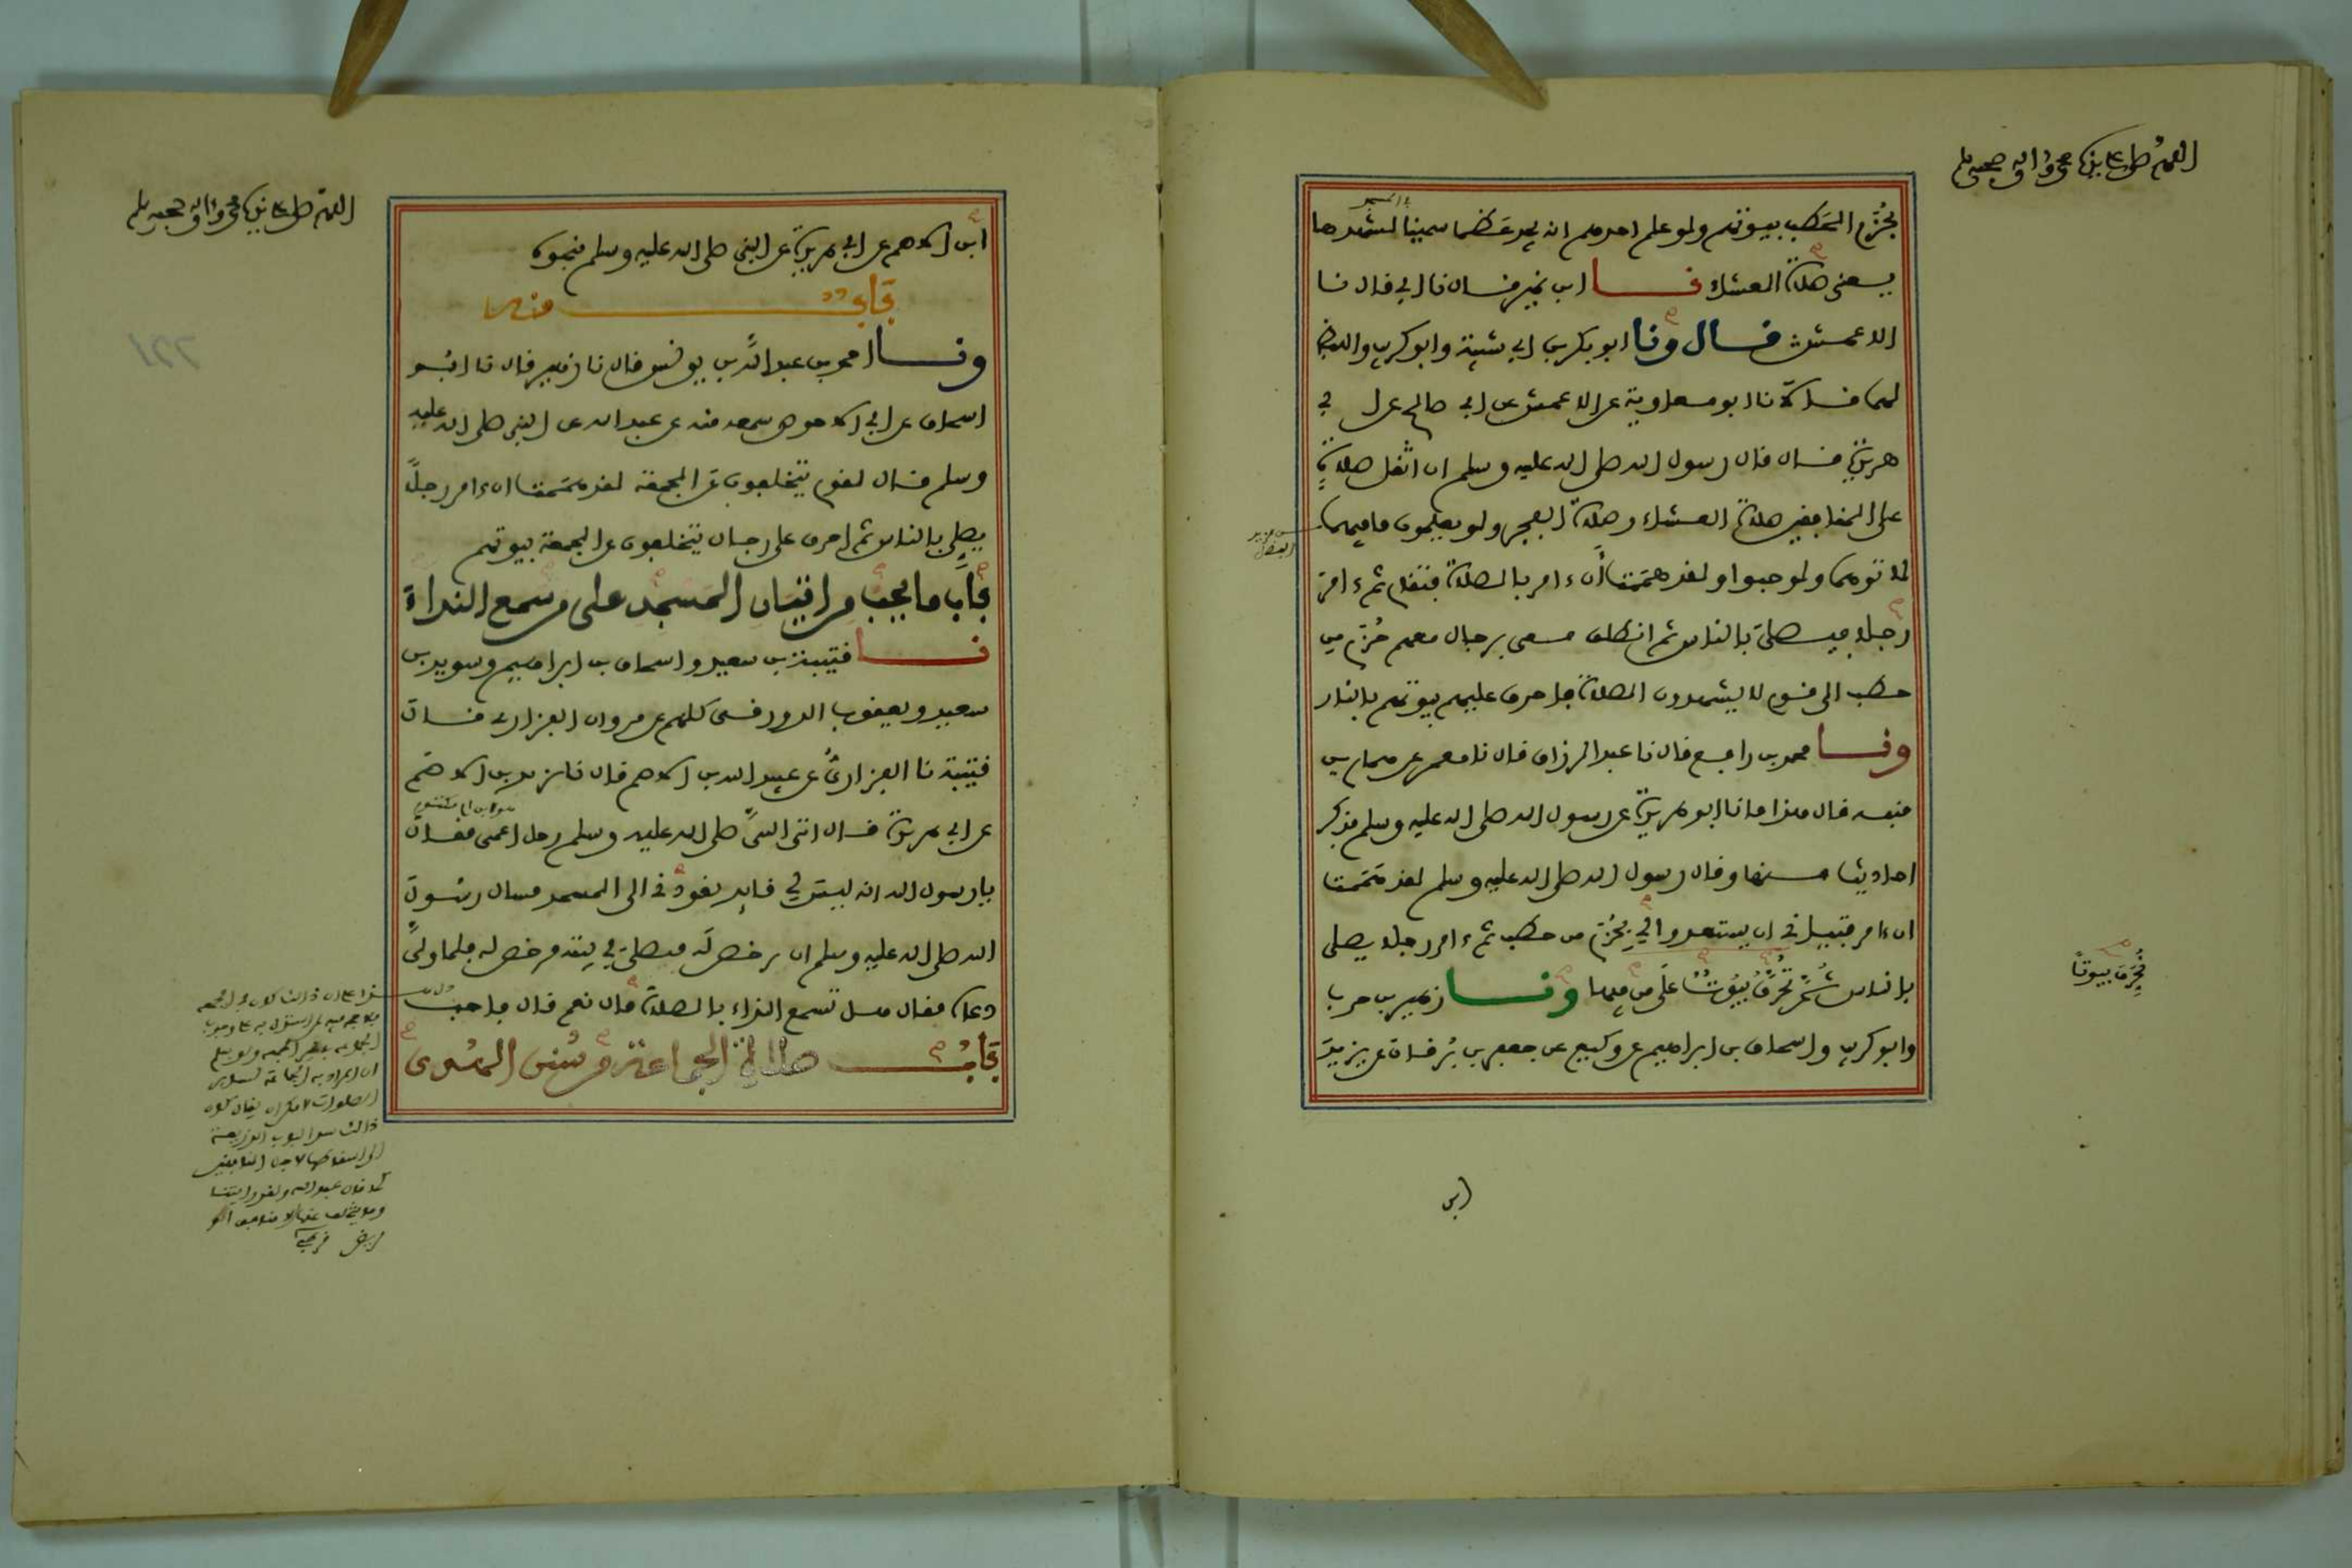 اللهم صل على نبينا محمد وءاله وصحبه وسلم
بحُزَم الحَطب بيوتهم ولو علم احدهم انه يجد عَظما سمينا لشهدها
يعنى صلاة العشاء نا ابن نمير قال نا ابي قال نا
الاعمش قال ونا ابو بكر بن ابي شيبة وابو كريب واللفظ
لهما قالا نا ابو معاوية عن الاعمش عن ابي صالح عن ابي
هريرة قال قال رسول الله صلى الله عليه وسلم ان اثقل صلاة
على المنافقين صلاة العشاء وصلاة الفجر ولو يعلمون ما فيهما
من مزيد الفضل
لاتوهما ولو حبوا ولقد هممت أن ءامر بالصلاة فتقام ثم ءامر
رجلا فيصلى بالناس ثم انطلق معى برجال معهم حُزَم من
حطب الى قوم لا يشهدون الصلاة فاحرق عليهم بيوتهم بالنار
ونا محمد بن رافع قال نا عبد الرزاق قال نا معمر عن همام بن
منبه قال هذا ما نا ابو هريرة عن رسول الله صلى الله عليه وسلم فذكر
احاديث منها وقال رسول الله صلى الله عليه وسلم لقد هممت
ان ءامر فتيانى ان يستعدوا لي بحُزَم من حطب ثم ءامر رجلا يصلى
بالناس ثُمَّ تُحَرَّقُ بُيُوتٌ عَلَى من فيها ونا زهير بن حرب
فتُحَرِّقَ بيوتاً
وابو كريب واسحاق بن ابراهيم عن وكيع عن جعفر بن بُرقان عن يزيد
ابن
اللهم صل على نبينا محمد وءاله وصحبه وسلم
ابن الاصم عن ابي هريرة عن النبى صلى الله عليه وسلم بنحوه
بَابٌ منه
ونا احمد بن عبد الله بن يونس قال نا زهير قال نا ابُو
اسحاق عن ابي الاحوص سمعه منه عن عبد الله عن النبى صلى الله عليه
وسلم قال لقوم يتخلفون عن الجمعة لقد هَمَمت ان ءامر رجلاً
يصلي بالناس ثم احرق على رجال يتخلفون عن الجمعة بيوتهم
بَابُ ما يجب من اتيان المَسْجِد على من سَمع النداء
نا قتيبة بن سعيد واسحاق بن ابراهيم وسويد بن
سعيد ويعقوب الدورقى كلهم عن مروان الفزارى قال
قتيبة نا الفزارىُّ عن عبيد الله بن الاصم قال نا يزيد بن الاصَم
عن ابي هريرة قال اتى النبىَّ صلى الله عليه وسلم رجل اعمى فقال
هو ابن ام مكتوم
يا رسول الله انه ليسَ لي قايد يقودُنى الى المسجد فسال رسُول
الله صلى الله عليه وسلم ان يرخص لَه فيصلىَ في بيته فرخص له فلما ولىَّ
دعاه فقال هل تسمع النداء بالصلاة قال نعم قال فاجب
بَابُ صلاة الجماعة من سُنن الهُدى